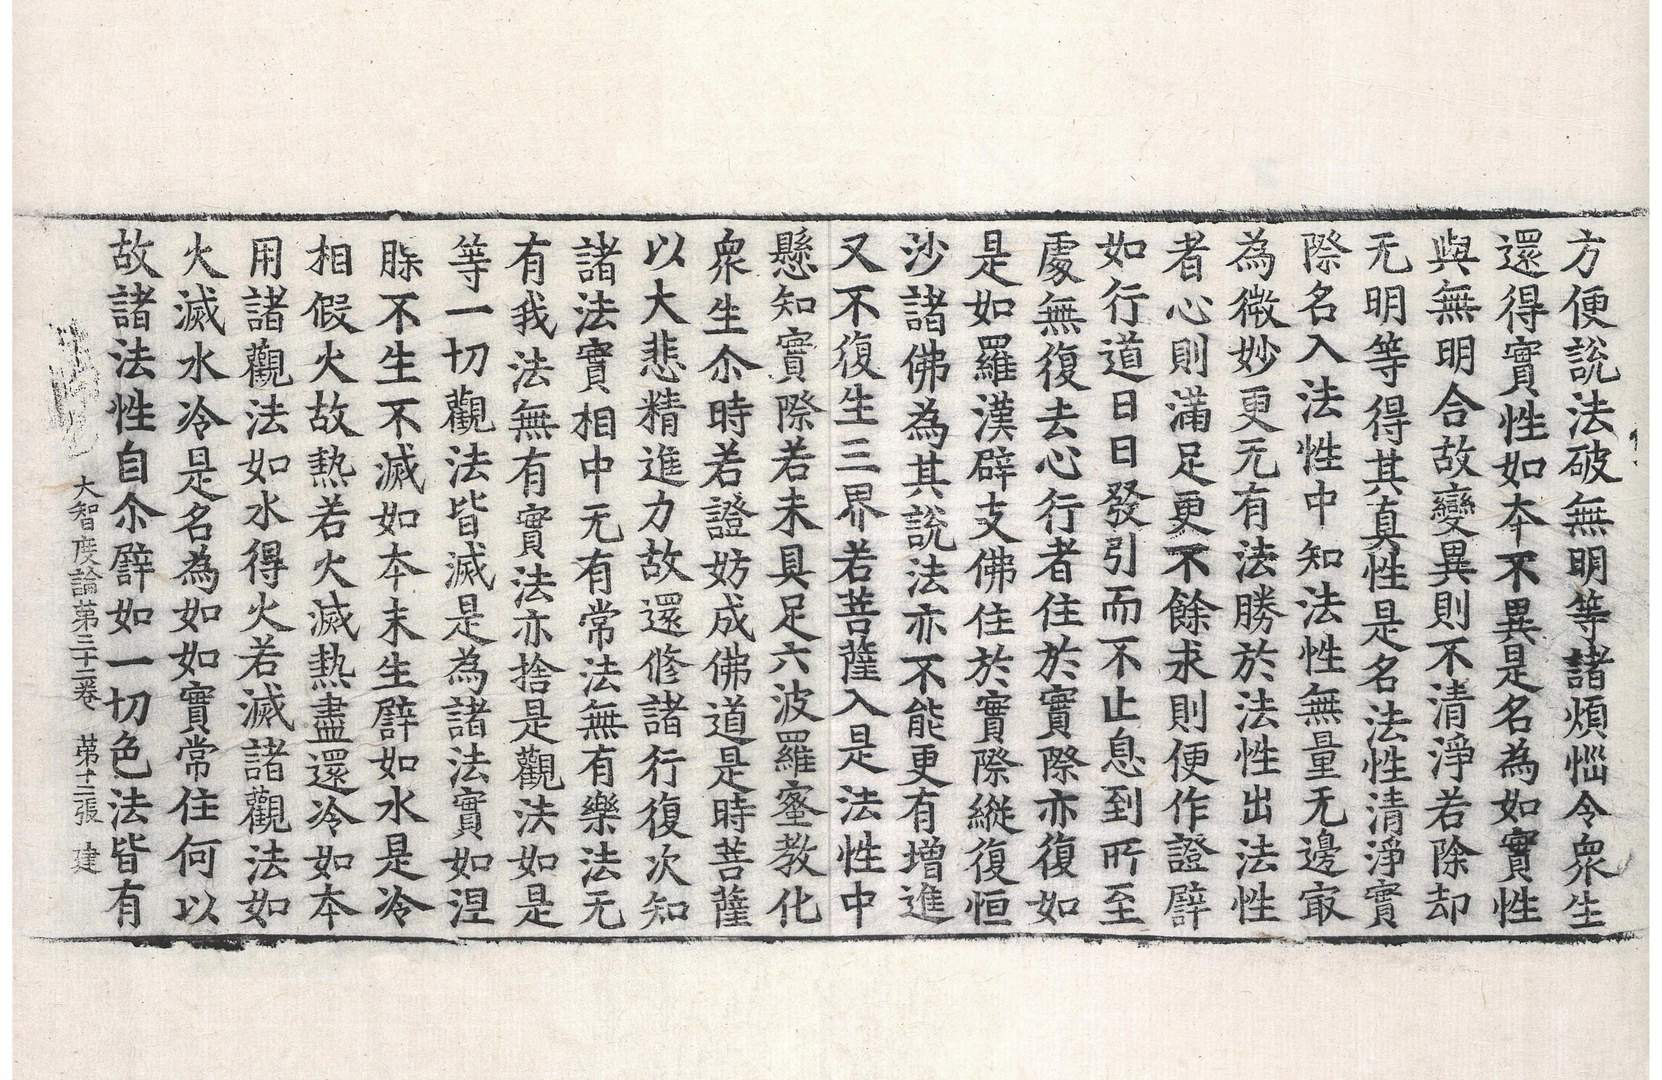 方便說法破無明等諸煩惱令衆生
還得實性如本不異是名為如實性
與無明合故變異則不清淨若除却
无明等得其真性是名法性清淨實
際名入法性中知法性無量无邊㝡
為微妙更无有法勝於法性出法性
者心則滿足更不餘求則便作證譬
如行道日日發引而不止息到所至
處無復去心行者住於實際亦復如
是如羅漢辟支佛住於實際縱復恒
沙諸佛為其說法亦不能更有增進
又不復生三界若菩薩入是法性中
懸知實際若未具足六波羅蜜教化
衆生尒時若證妨成佛道是時菩薩
以大悲精進力故還修諸行復次知
諸法實相中无有常法無有樂法无
有我法無有實法亦捨是觀法如是
等一切觀法皆滅是為諸法實如涅
脲不生不滅如本末生譬如水是冷
相假火故熱若火滅熱盡還冷如本
用諸觀法如水得火若滅諸觀法如
火滅水冷是名為如如實常住何以
故諸法性自尒譬如一切色法皆有
大智度論第三十二卷 第十二張 建